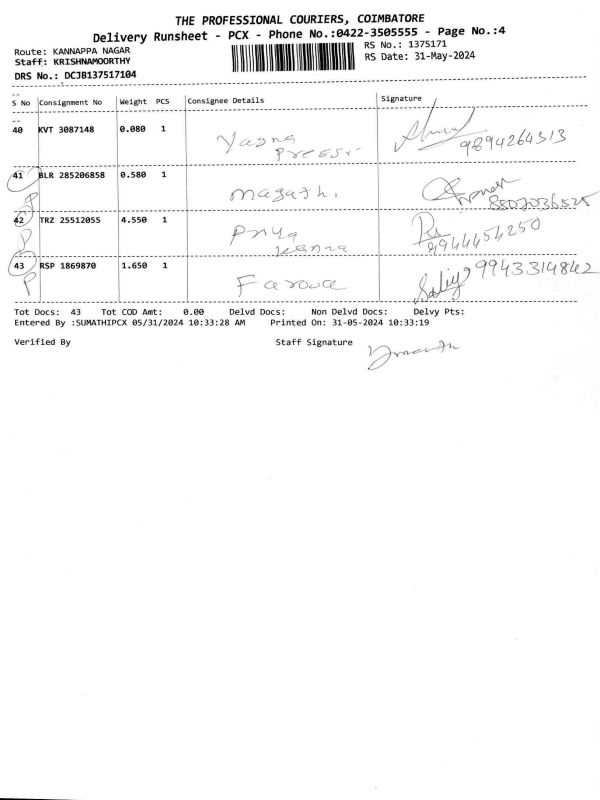 THE PROFESSIONAL COURIERS, COIMBATORE
Delivery Runsheet - PCX - Phone No.:0422-3505555 - Page No.:4
Route: KANNAPPA NAGAR
RS No.: 1375171
Staff: KRISHNAMOORTHY
RS Date: 31-May-2024
DRS No.: DCJB137517104
S No Consignment No Weight PCS Consignee Details Signature
40 KVT 3087148 0.080 1 Yagna
Preessi 9894264313
41 BLR 285206858 0.580 1 magathi.
P
42 TRZ 25512055 4.550 1 Priya
P kanna 9944454250
43 RSP 1869870 1.650 1 Farova 9943314842
P
Tot Docs: 43 Tot COD Amt: 0.00 Delvd Docs: Non Delvd Docs: Delvy Pts:
Entered By :SUMATHIPCX 05/31/2024 10:33:28 AM Printed On: 31-05-2024 10:33:19
Verified By Staff Signature